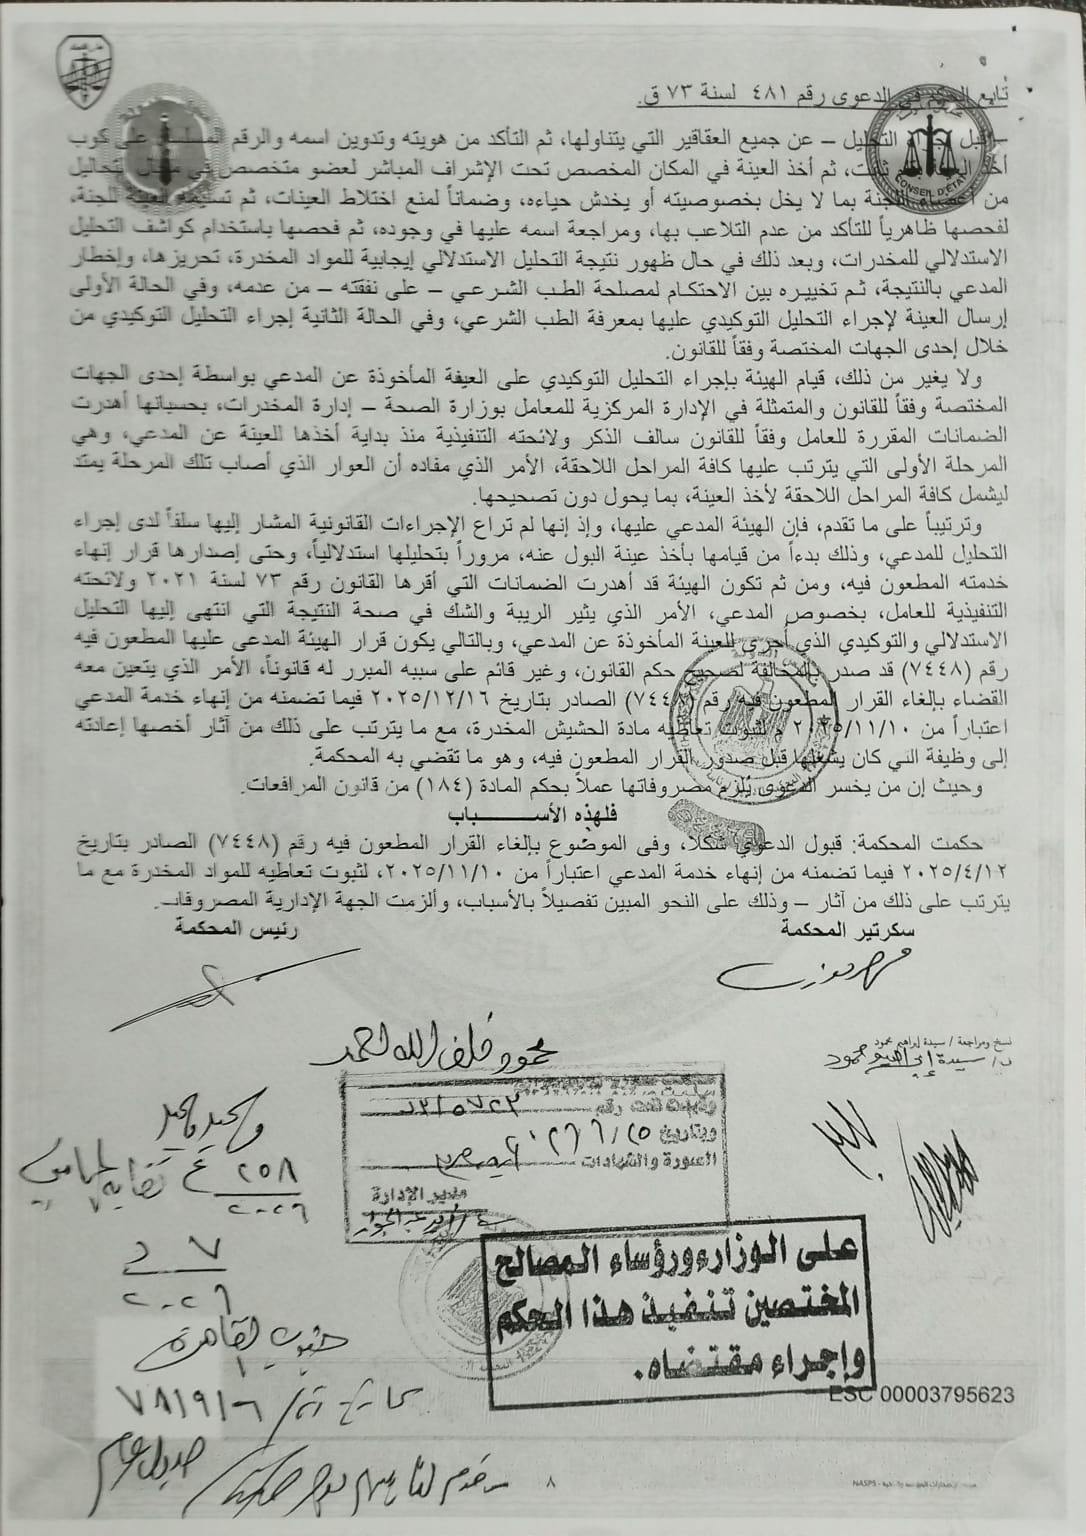 تابع الحكم في الدعوى رقم ٤٨١ لسنة ٧٣ ق.
CONSEIL D'ETAT
– قبل التحليل – عن جميع العقاقير التي يتناولها، ثم التأكد من هويته وتدوين اسمه والرقم المسلسل على كوب
أخذ ثم أخذ العينة في المكان المخصص تحت الإشراف المباشر لعضو متخصص في مجال التحاليل
من أعضاء اللجنة بما لا يخل بخصوصيته أو يخدش حياءه، وضماناً لمنع اختلاط العينات، ثم تسليمه العينة للجنة،
لفحصها ظاهرياً للتأكد من عدم التلاعب بها، ومراجعة اسمه عليها في وجوده، ثم فحصها باستخدام كواشف التحليل
الاستدلالي للمخدرات، وبعد ذلك في حال ظهور نتيجة التحليل الاستدلالي إيجابية للمواد المخدرة، تحريزها، وإخطار
المدعي بالنتيجة، ثم تخييره بين الاحتكام لمصلحة الطب الشرعي – على نفقته – من عدمه، وفي الحالة الأولى
إرسال العينة لإجراء التحليل التوكيدي عليها بمعرفة الطب الشرعي، وفي الحالة الثانية إجراء التحليل التوكيدي من
خلال إحدى الجهات المختصة وفقاً للقانون.
ولا يغير من ذلك، قيام الهيئة بإجراء التحليل التوكيدي على العينة المأخوذة عن المدعي بواسطة إحدى الجهات
المختصة وفقاً للقانون والمتمثلة في الإدارة المركزية للمعامل بوزارة الصحة – إدارة المخدرات، بحسبانها أهدرت
الضمانات المقررة للعامل وفقاً للقانون سالف الذكر ولائحته التنفيذية منذ بداية أخذها للعينة عن المدعي، وهي
المرحلة الأولى التي يترتب عليها كافة المراحل اللاحقة، الأمر الذي مفاده أن العوار الذي أصاب تلك المرحلة يمتد
ليشمل كافة المراحل اللاحقة لأخذ العينة، بما يحول دون تصحيحها.
وترتيباً على ما تقدم، فإن الهيئة المدعي عليها، وإذ إنها لم تراع الإجراءات القانونية المشار إليها سلفاً لدى إجراء
التحليل للمدعي، وذلك بدءاً من قيامها بأخذ عينة البول عنه، مروراً بتحليلها استدلالياً، وحتى إصدارها قرار إنهاء
خدمته المطعون فيه، ومن ثم تكون الهيئة قد أهدرت الضمانات التي أقرها القانون رقم ٧٣ لسنة ٢٠٢١ ولائحته
التنفيذية للعامل، بخصوص المدعي، الأمر الذي يثير الريبة والشك في صحة النتيجة التي انتهى إليها التحليل
الاستدلالي والتوكيدي الذي أجري للعينة المأخوذة عن المدعي، وبالتالي يكون قرار الهيئة المدعى عليها المطعون فيه
رقم (٧٤٤٨) قد صدر بالمخالفة لصحيح حكم القانون، وغير قائم على سببه المبرر له قانوناً، الأمر الذي يتعين معه
القضاء بإلغاء القرار المطعون فيه رقم (٧٤٤٨) الصادر بتاريخ ٢٠٢٥/١٢/١٦ فيما تضمنه من إنهاء خدمة المدعي
اعتباراً من ٢٠٢٥/١١/١٠ م لثبوت تعاطيه مادة الحشيش المخدرة، مع ما يترتب على ذلك من آثار أخصها إعادته
إلى وظيفة التي كان يشغلها قبل صدور القرار المطعون فيه، وهو ما تقضي به المحكمة.
وحيث إن من يخسر الدعوى يُلزم مصروفاتها عملاً بحكم المادة (١٨٤) من قانون المرافعات.
فلهذه الأســـباب
حكمت المحكمة: قبول الدعوي شكلاً، وفى الموضوع بإلغاء القرار المطعون فيه رقم (٧٤٤٨) الصادر بتاريخ
٢٠٢٥/٤/١٢ فيما تضمنه من إنهاء خدمة المدعي اعتباراً من ٢٠٢٥/١١/١٠، لثبوت تعاطيه للمواد المخدرة مع ما
يترتب على ذلك من آثار – وذلك على النحو المبين تفصيلاً بالأسباب، وألزمت الجهة الإدارية المصروفات.
سكرتير المحكمة
رئيس المحكمة
نسخ ومراجعة / سيدة إبراهيم محمود
سيدة إبراهيم محمود
محمود خلف الله احمد
وقيدت تحت رقم
وبتاريخ ٢٠٢٦/٦/٢٥
الصورة والشهادات
مدير الإدارة
٢٥٨
٢٠٢٦
٧
٢٠٢٦
جنوب القاهرة
على الوزارء ورؤساء المصالح
المختصين تنفيذ هذا الحكم
وإجراء مقتضاه.
ESC 00003795623
٨